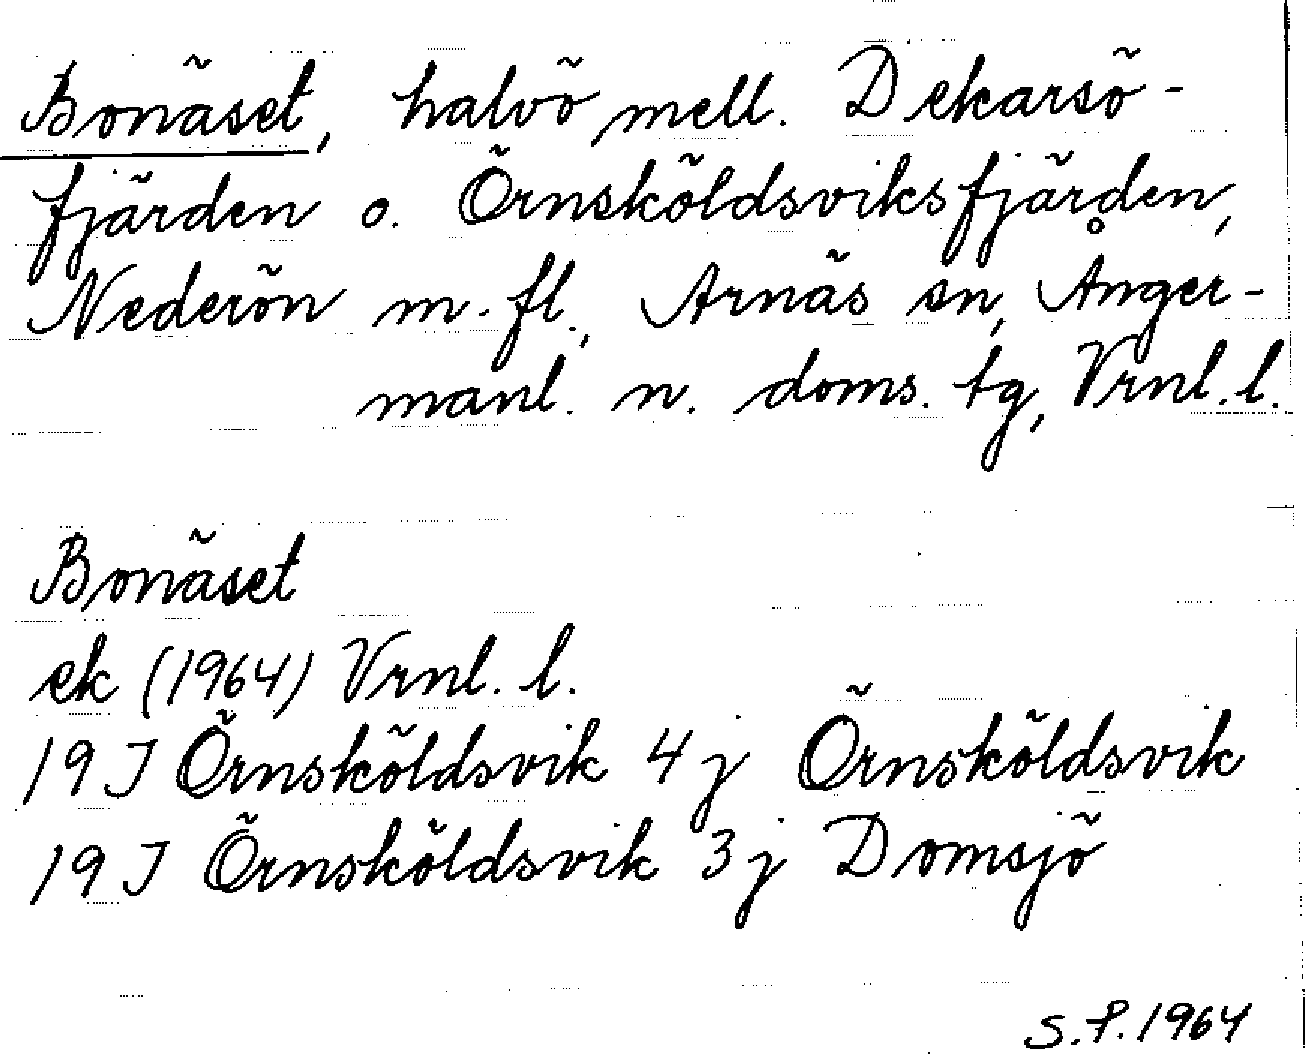 Bonäset, halvö mell. Dekarsö-
fjärden o. Örnsköldsviksfjärden,
Nederön m. fl., Arnäs sn, Ånger-
manl. n. doms. tg, Vrnl. l.
Bonäset
ek (1964) Vrnl. l.
19 J Örnsköldsvik 4 j Örnsköldsvik
19 J Örnsköldsvik 3 j Domsjö
S.P. 1964